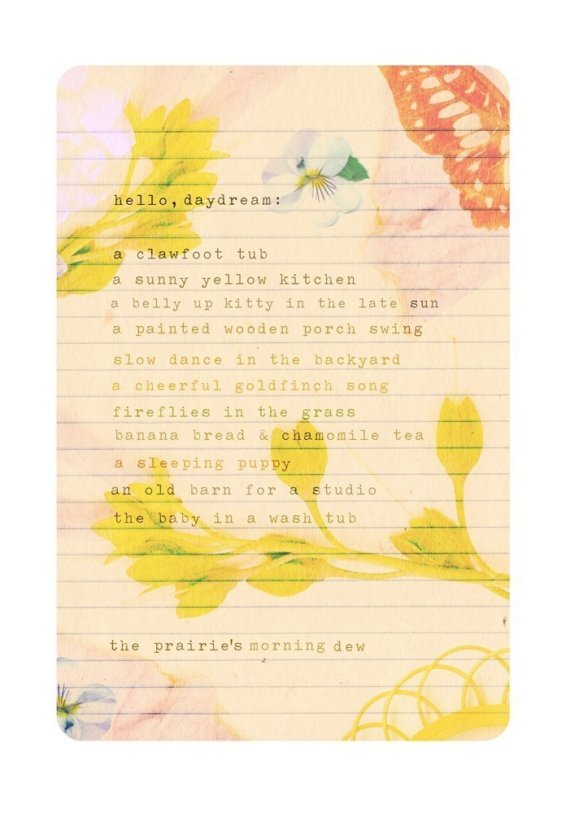 hello, daydream:
a clawfoot tub
a sunny yellow kitchen
a belly up kitty in the late sun
a painted wooden porch swing
slow dance in the backyard
a cheerful goldfinch song
fireflies in the grass
banana bread & chamomile tea
a sleeping puppy
an old barn for a studio
the baby in a wash tub
the prairie's morning dew